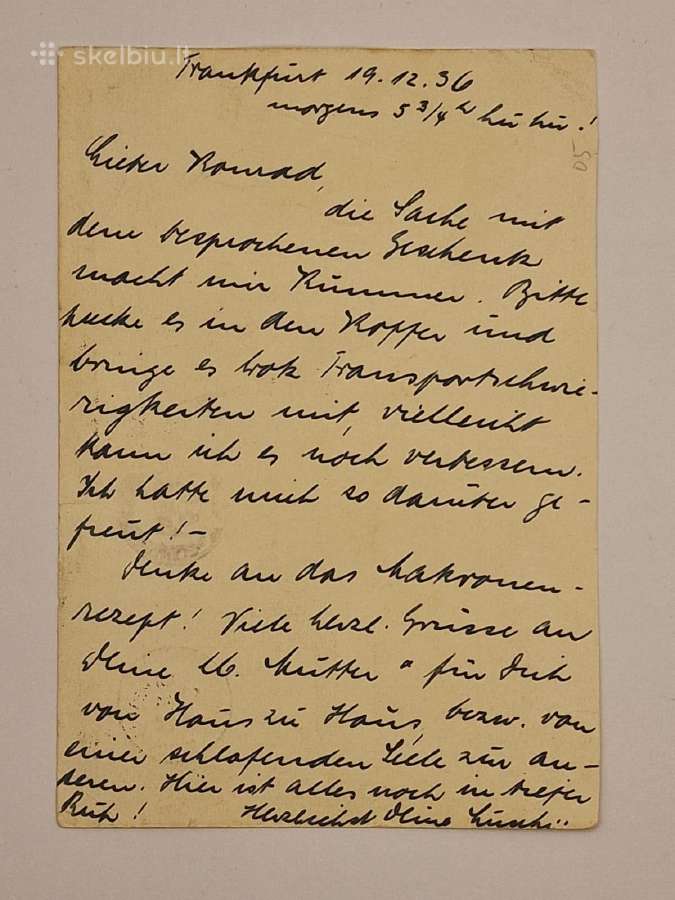 skelbiu.lt
Frankfurt 19.12.36
morgens 5 3/4 h hu hu!
05
Lieber Konrad,
die Sache mit
dem besprochenen Geschenk
macht mir Kummer. Bitte
packe es in den Koffer und
bringe es trotz Transportschwie-
rigkeiten mit, vielleicht
kann ich es noch verbessern.
Ich hatte mich so darüber ge-
freut! -
Denke an das Makronen-
rezept! Viele herzl. Grüsse an
Deine lb. Mutter u. für Dich
von Haus zu Haus, bezw. von
einer schlafenden Seele zur an-
deren. Hier ist alles noch in tiefer
Ruh! Herzlichst Deine